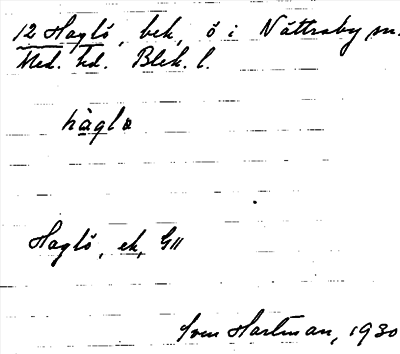 12 Haglö, bek, ö i Nättraby sn.
Med. hd. Blek. l.
hàglø
Haglö, ek, GII
Sven Hartman, 1930